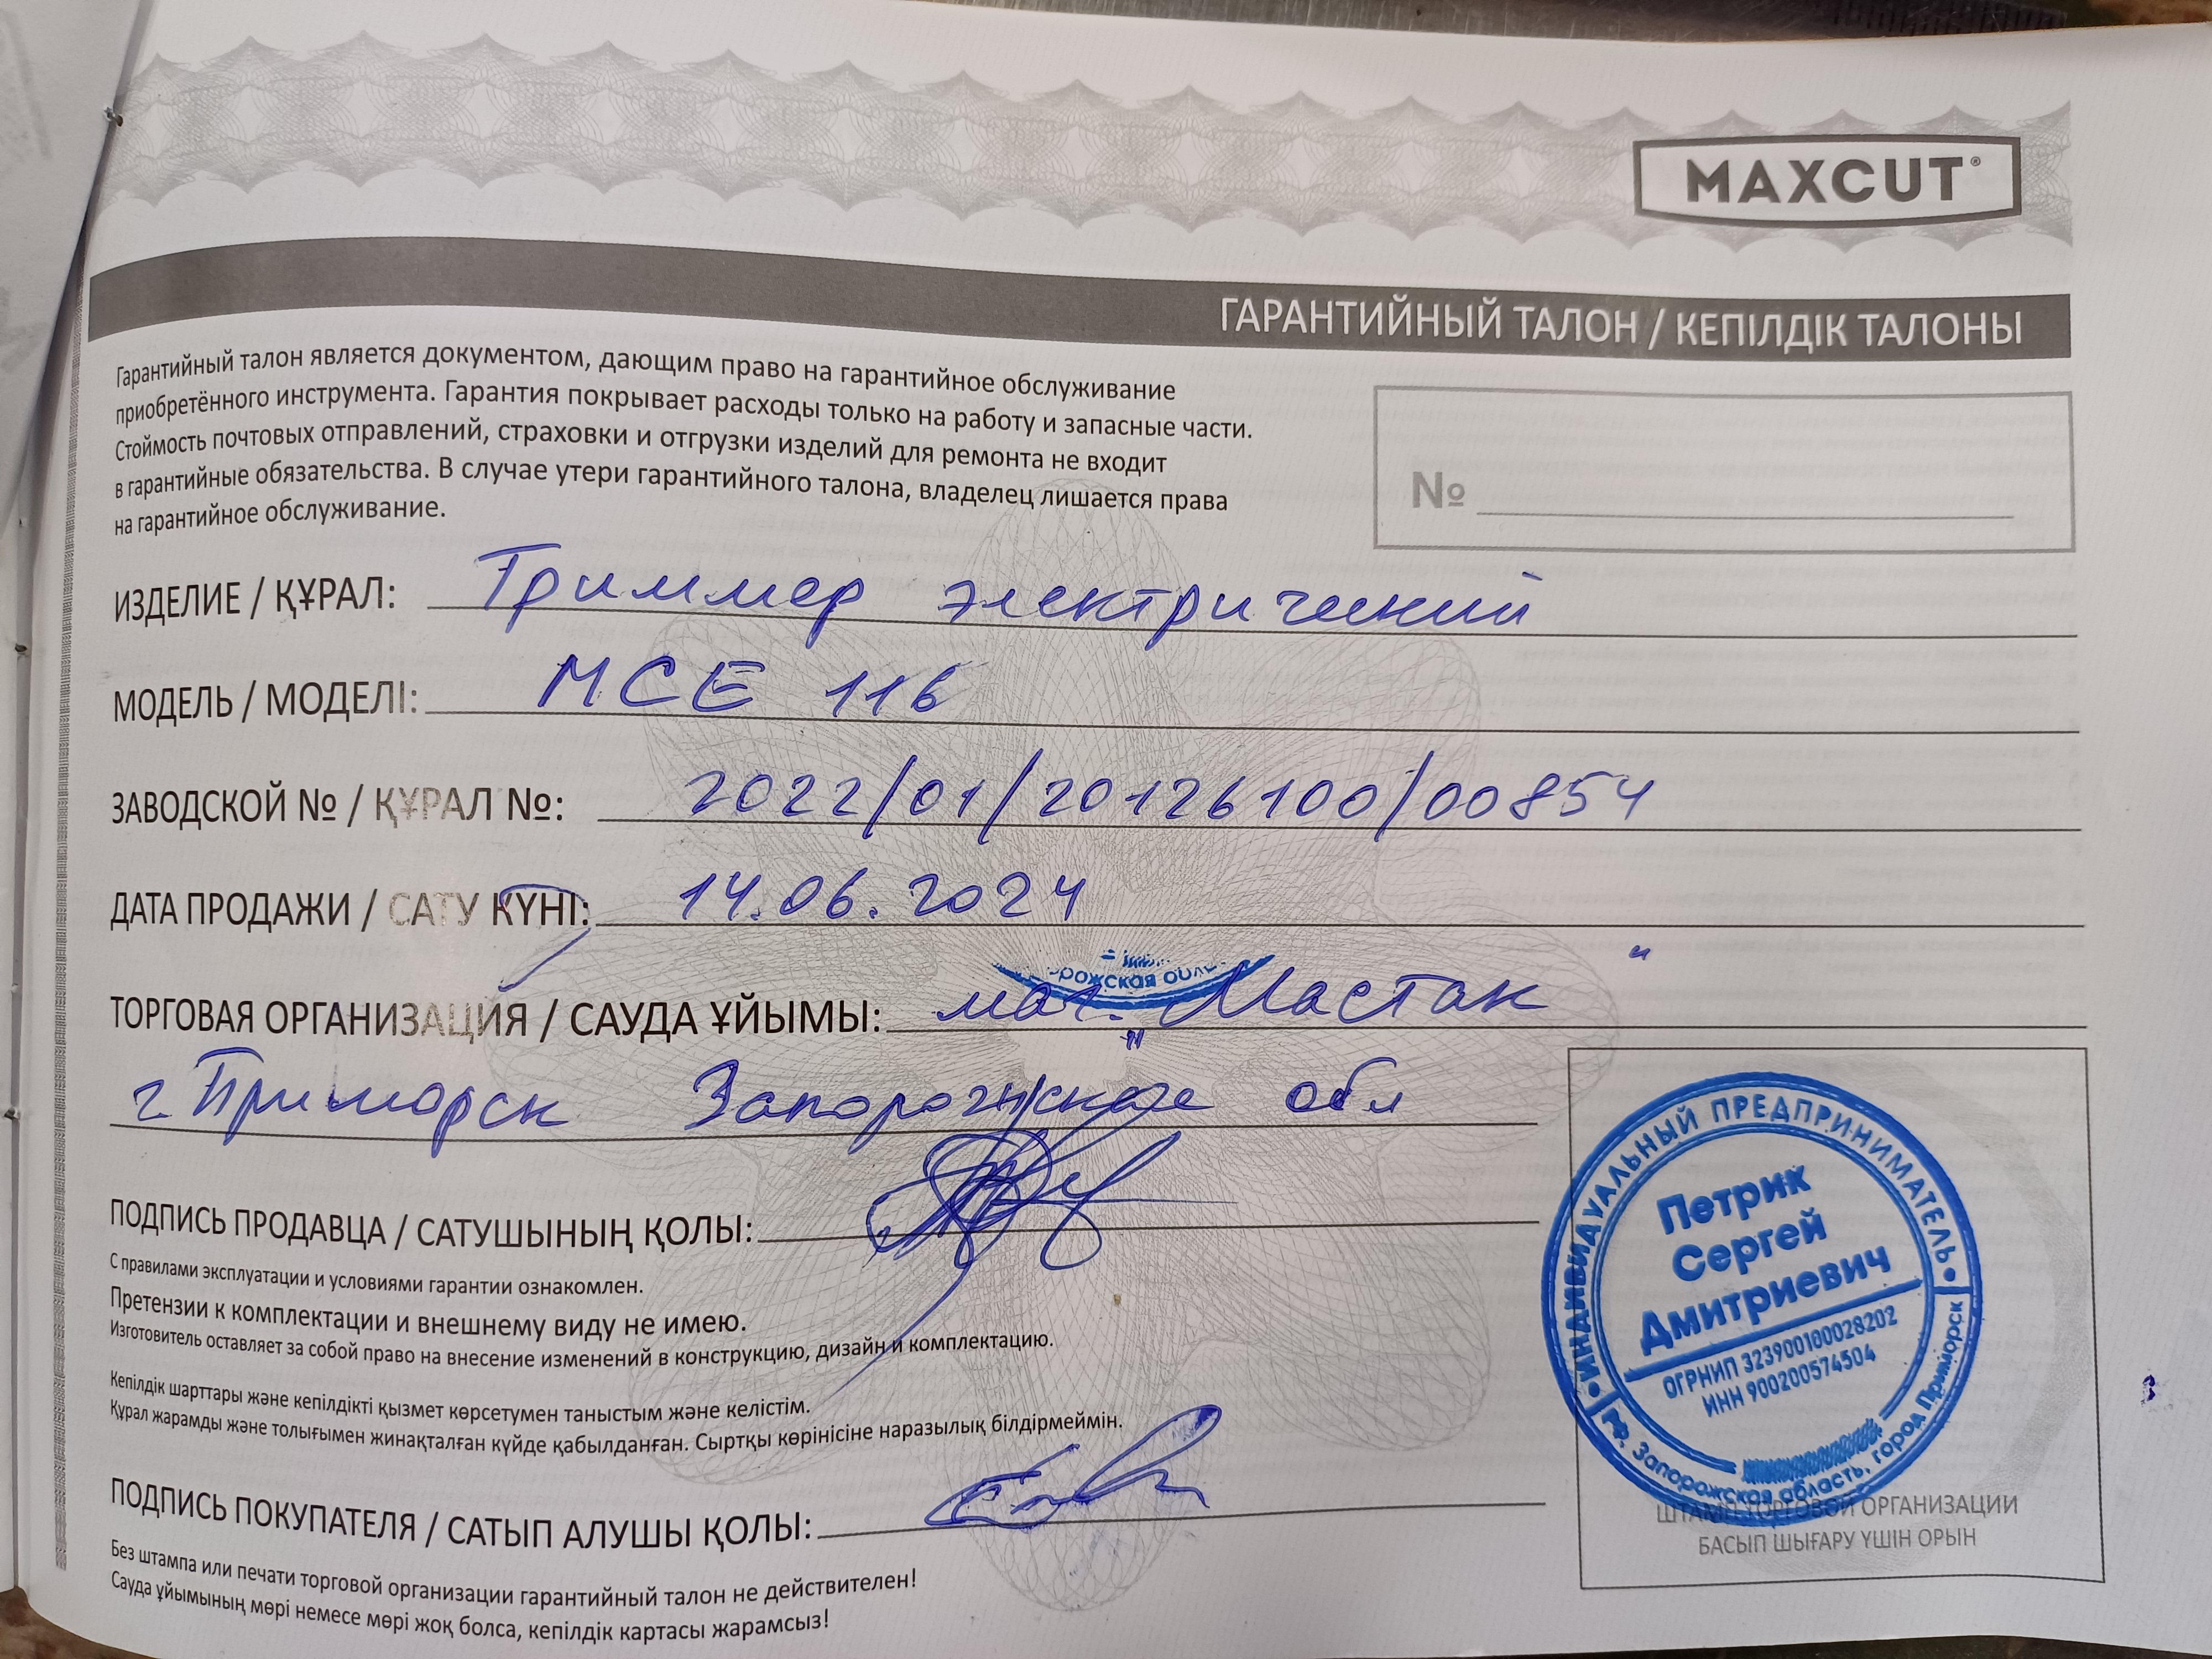 MAXCUT®
ГАРАНТИЙНЫЙ ТАЛОН / КЕПІЛДІК ТАЛОНЫ
Гарантийный талон является документом, дающим право на гарантийное обслуживание
приобретённого инструмента. Гарантия покрывает расходы только на работу и запасные части.
Стоймость почтовых отправлений, страховки и отгрузки изделий для ремонта не входит
в гарантийные обязательства. В случае утери гарантийного талона, владелец лишается права
на гарантийное обслуживание.
№
ИЗДЕЛИЕ / ҚҰРАЛ: Триммер электрический
МОДЕЛЬ / МОДЕЛІ: МСЕ 116
ЗАВОДСКОЙ № / ҚҰРАЛ №: 2022/01/20126100/00854
ДАТА ПРОДАЖИ / САТУ КҮНІ: 14.06.2024
ТОРГОВАЯ ОРГАНИЗАЦИЯ / САУДА ҰЙЫМЫ: маг. "Мастак"
г. Приморск Запорожская обл
ПОДПИСЬ ПРОДАВЦА / САТУШЫНЫҢ ҚОЛЫ:
С правилами эксплуатации и условиями гарантии ознакомлен.
Претензии к комплектации и внешнему виду не имею.
Изготовитель оставляет за собой право на внесение изменений в конструкцию, дизайн и комплектацию.
Кепілдік шарттары және кепілдікті қызмет көрсетумен таныстым және келістім.
Құрал жарамды және толығымен жинақталған күйде қабылданған. Сыртқы көрінісіне наразылық білдірмеймін.
ПОДПИСЬ ПОКУПАТЕЛЯ / САТЫП АЛУШЫ ҚОЛЫ:
Без штампа или печати торговой организации гарантийный талон не действителен!
Сауда ұйымының мөрі немесе мөрі жоқ болса, кепілдік картасы жарамсыз!
ИНДИВИДУАЛЬНЫЙ ПРЕДПРИНИМАТЕЛЬ
Петрик
Сергей
Дмитриевич
ОГРНИП 323900100028202
ИНН 900200574504
РФ, Запорожская область, город Приморск
ШТАМП ТОРГОВОЙ ОРГАНИЗАЦИИ
БАСЫП ШЫҒАРУ ҮШІН ОРЫН